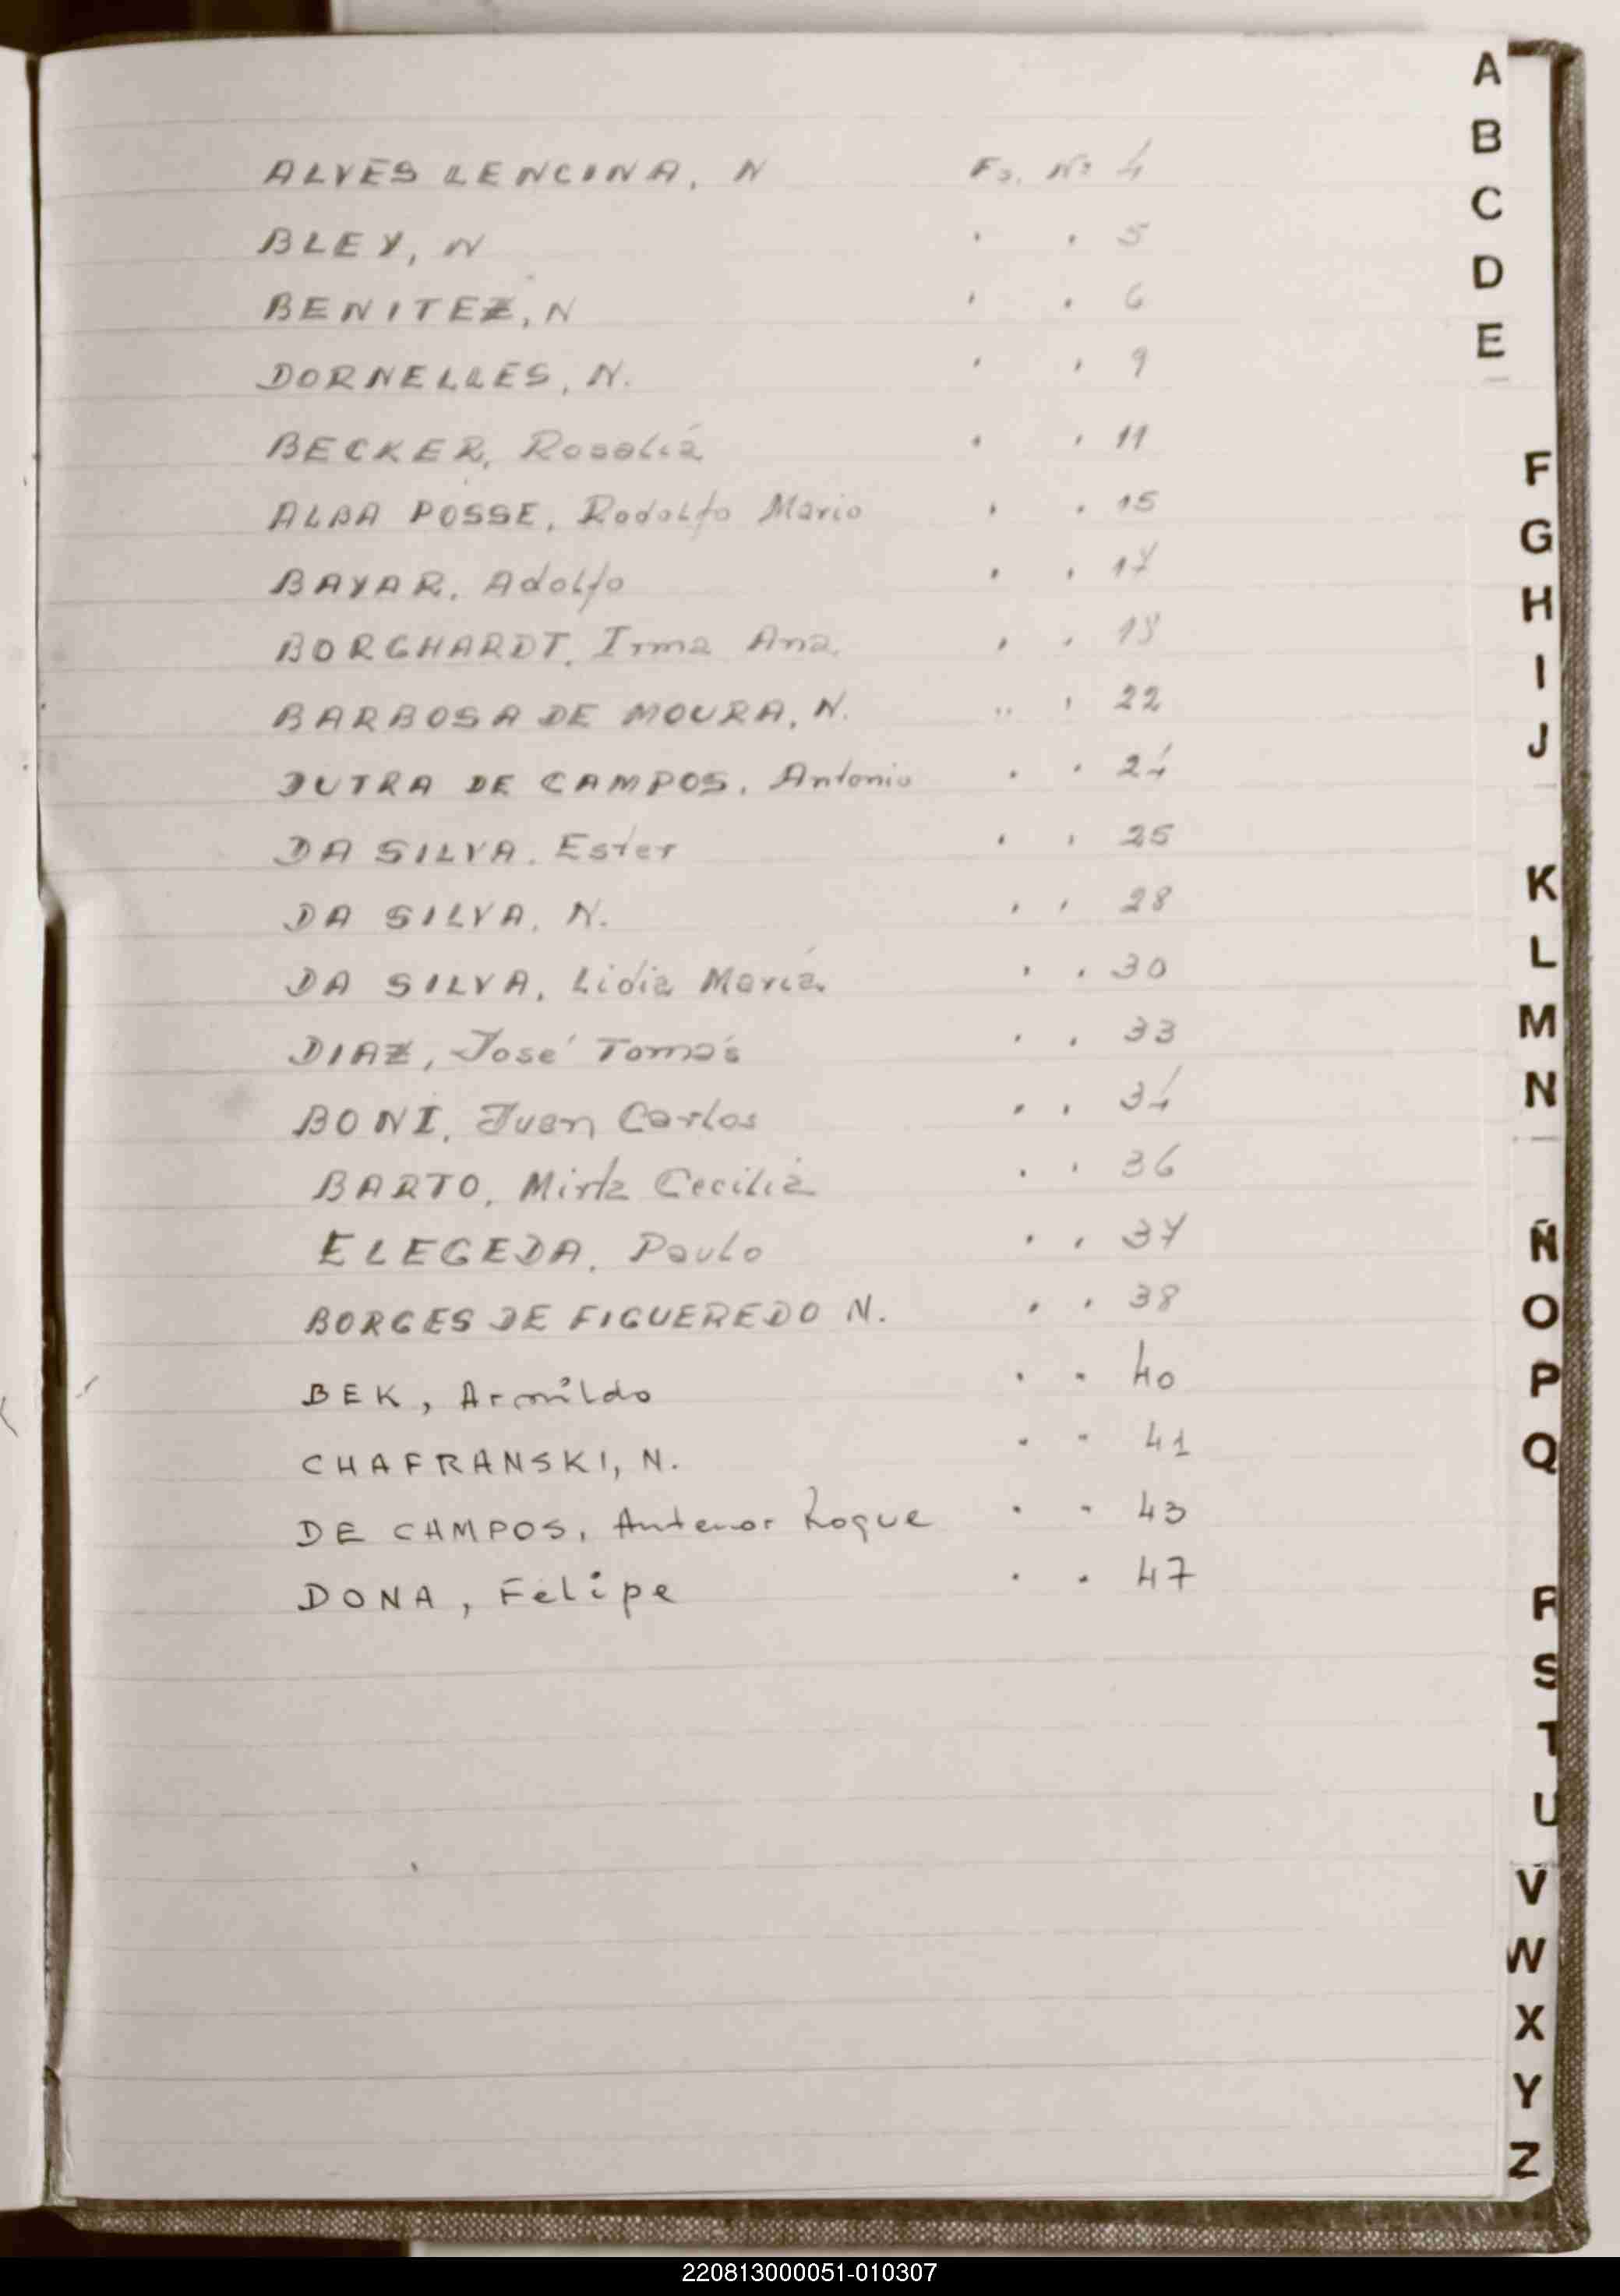 ALVES LENCINA, N Fo. Nº 4
BLEY, N " " 5
BENITEZ, N " " 6
DORNELLES, N. " " 9
BECKER, Rosalia " " 11
ALBA POSSE, Rodolfo Mario " " 15
BAYAR, Adolfo " " 17
BORGHARDT, Irma Ana. " " 18
BARBOSA DE MOURA, N. " " 22
DUTRA DE CAMPOS, Antonio " " 24
DA SILVA, Ester " " 25
DA SILVA, N. " " 28
DA SILVA, Lidia María. " " 30
DIAZ, José Tomás " " 33
BONI, Juan Carlos " " 34
BARTO, Mirta Cecilia " " 36
ELEGEDA, Paulo " " 37
BORGES DE FIGUEREDO N. " " 38
BEK, Armildo " " 40
CHAFRANSKI, N. " " 41
DE CAMPOS, Antenor Roque " " 43
DONA, Felipe " " 47
A
B
C
D
E
F
G
H
I
J
K
L
M
N
Ñ
O
P
Q
R
S
T
U
V
W
X
Y
Z
220813000051-010307